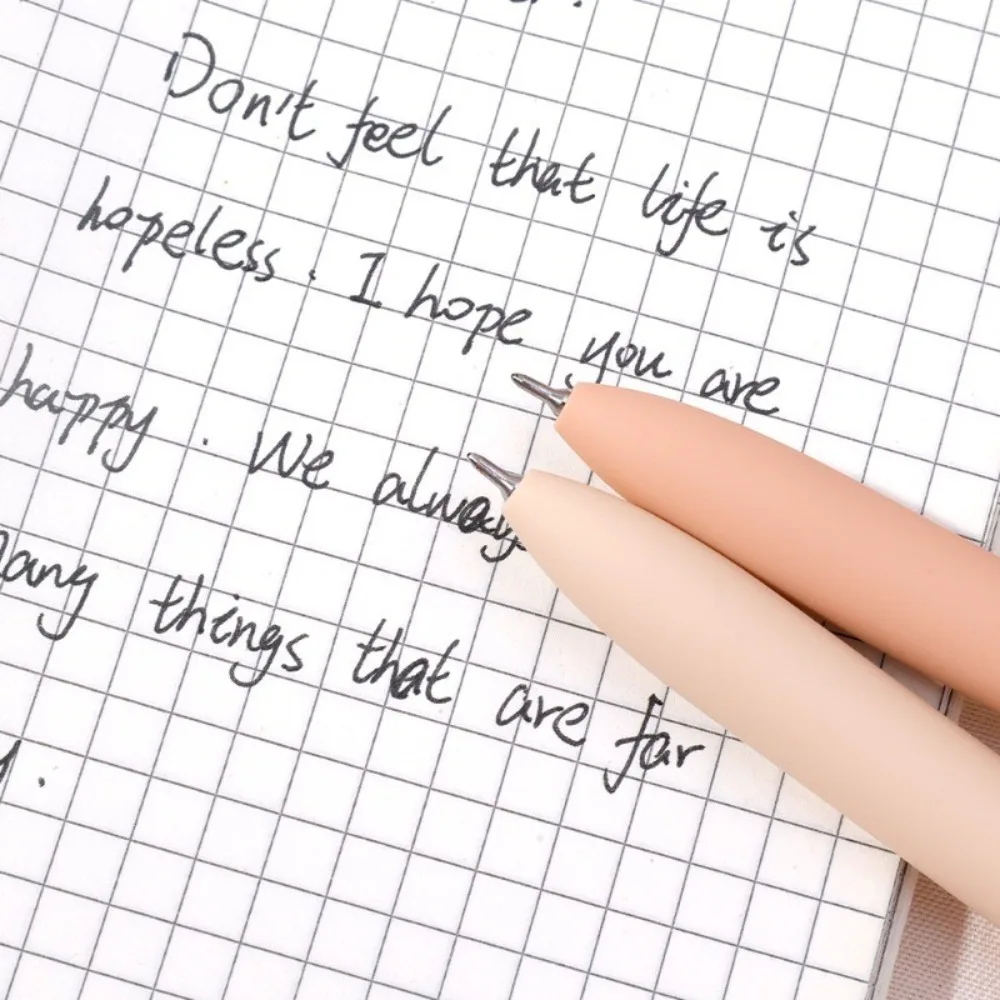 Don't feel that life is
hopeless. I hope you are
happy. We always
many things that are far